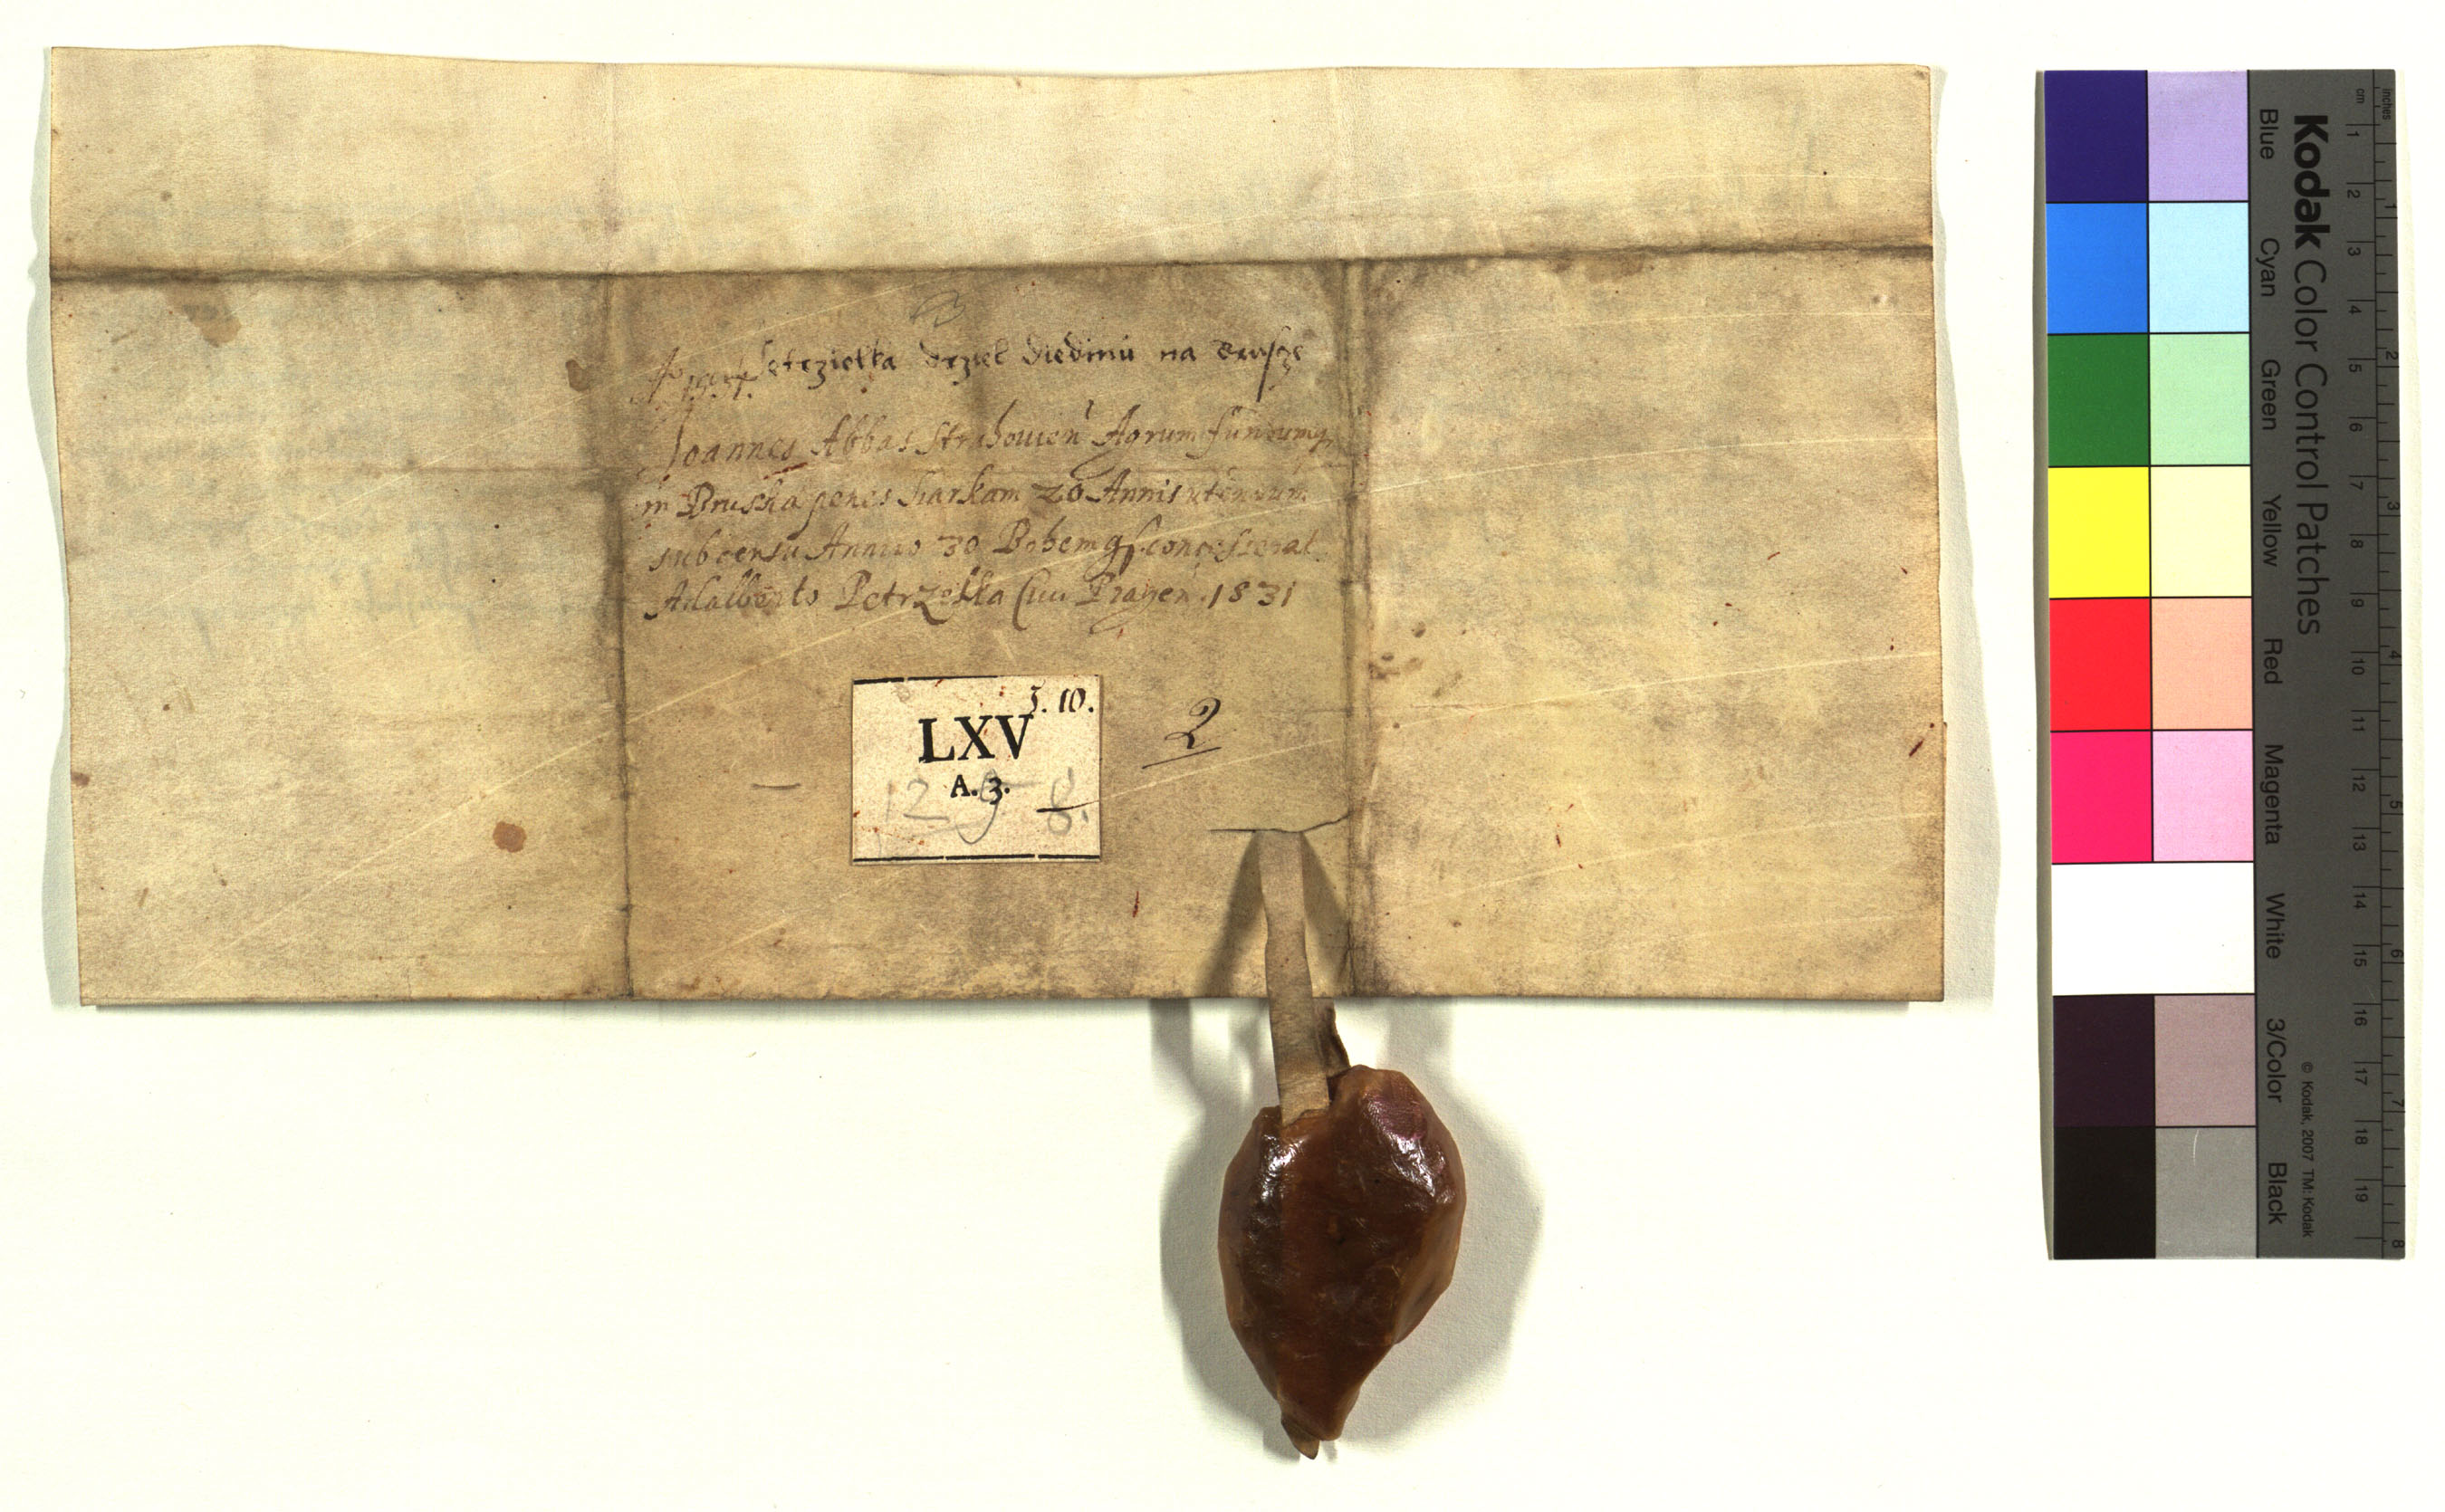 Petrziolka drziel diedinu na brusze
Joannes Abbas Strahouien Agrum fundumq
in Bruska penes Sarkam 20 Annis utendum
sub censu Annuo 30 Bohem gr. concesserat
Adalberto Petrzelka Ciui Pragen. 1531
5. 10.
LXV
A. 3.
2
Kodak Color Control Patches
Blue Cyan Green Yellow Red Magenta White 3/Color Black
© Kodak, 2007 TM: Kodak
cm 1 2 3 4 5 6 7 8 9 10 11 12 13 14 15 16 17 18 19
inches 1 2 3 4 5 6 7 8